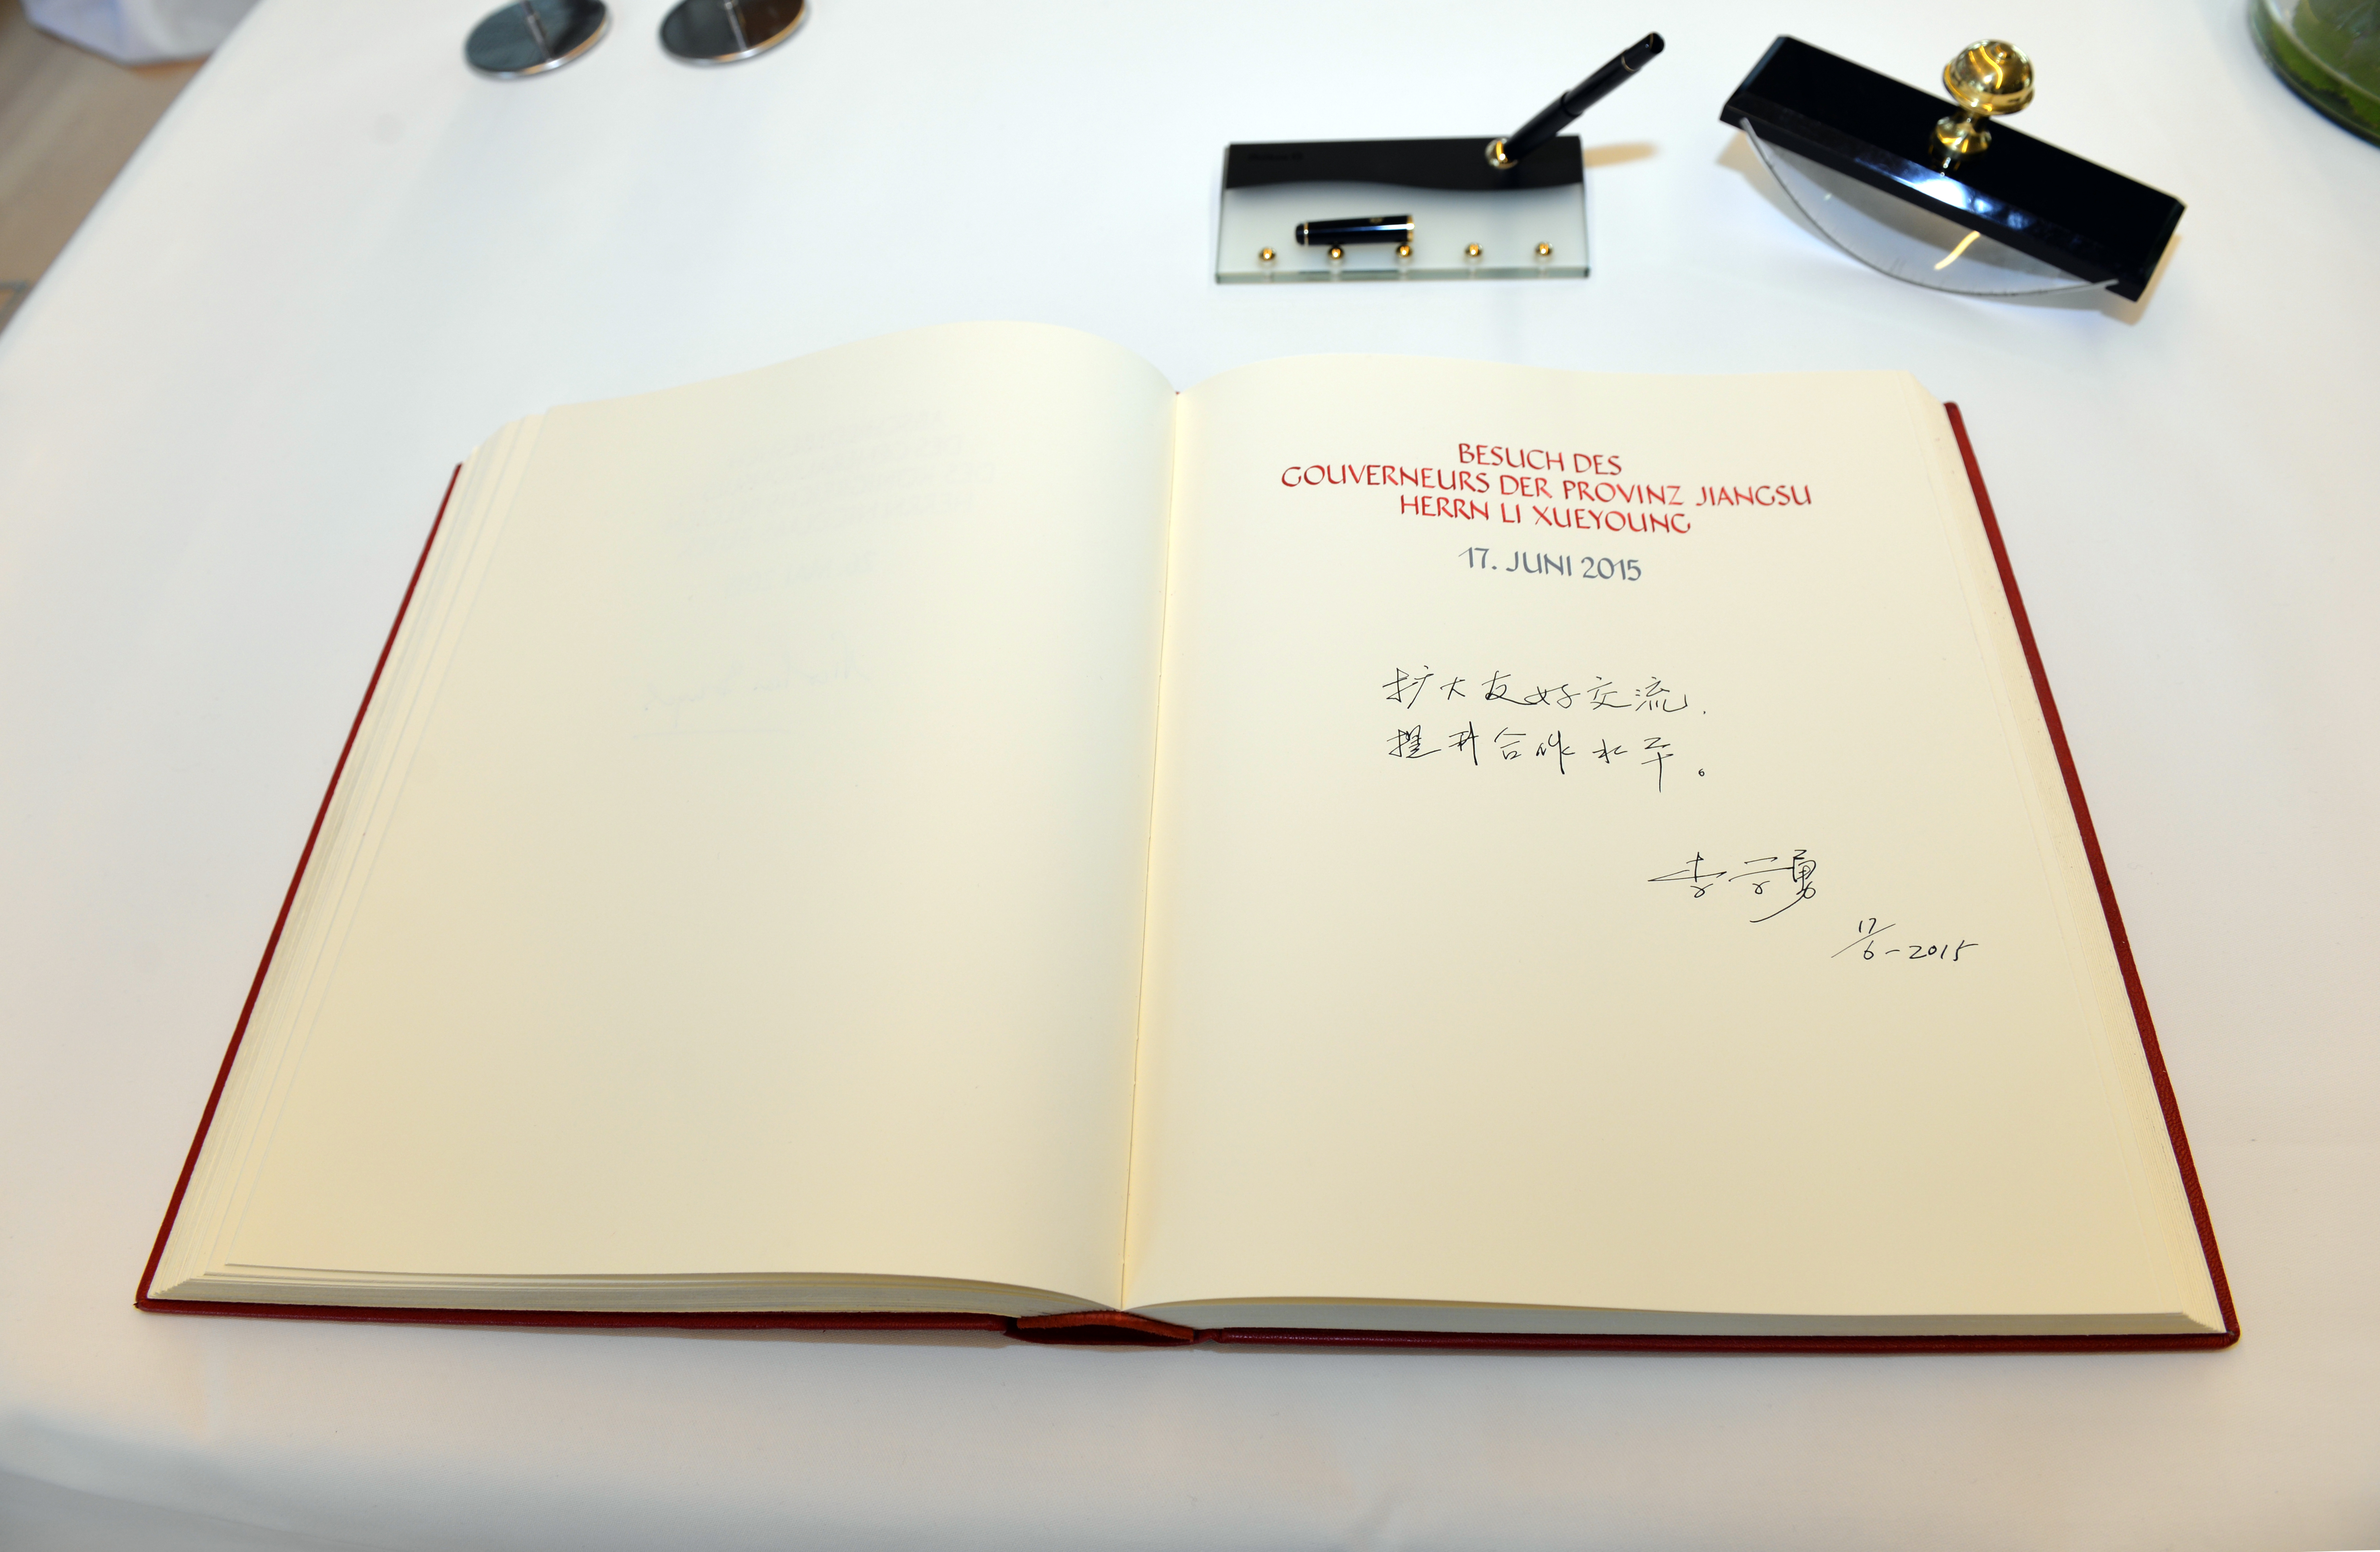 BESUCH DES
GOUVERNEURS DER PROVINZ JIANGSU
HERRN LI XUEYOUNG
17. JUNI 2015
扩大友好交流,
提升合作水平。
李学勇
17/6-2015